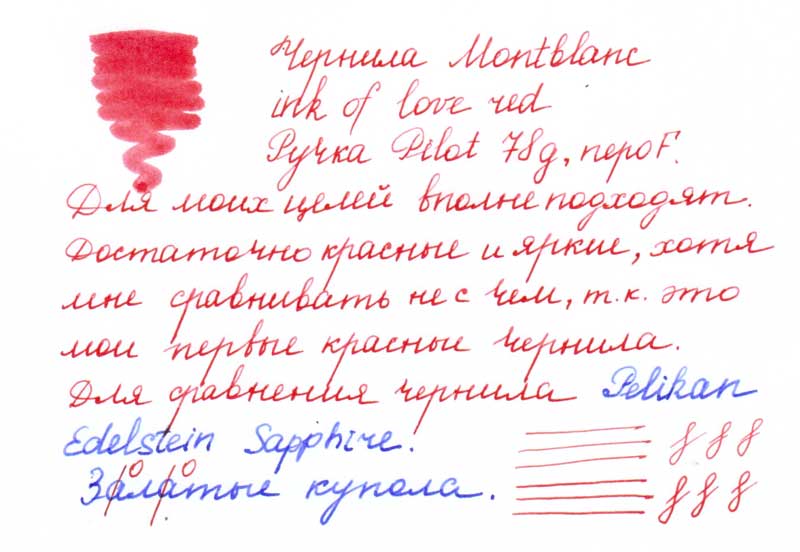 Чернила Montblanc
ink of love red
Ручка Pilot 78g, перо F.
Для моих целей вполне подходят.
Достаточно красные и яркие, хотя
мне сравнивать не с чем, т.к. это
мои первые красные чернила.
Для сравнения чернила Pelikan
Edelstein Sapphire.
о о
Залатые купола.